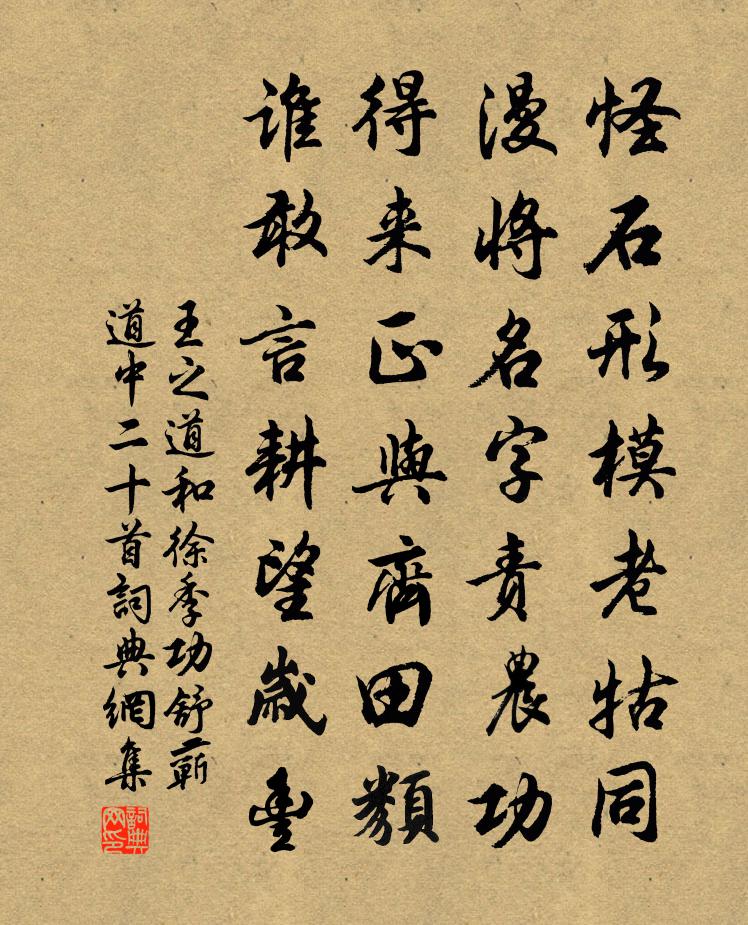 怪石形模老牯同
漫將名字責農功
得来正與齊田類
誰敢言耕望歲豊
王之道和徐季功舒蘄
道中二十首詞典網集
詞典网印